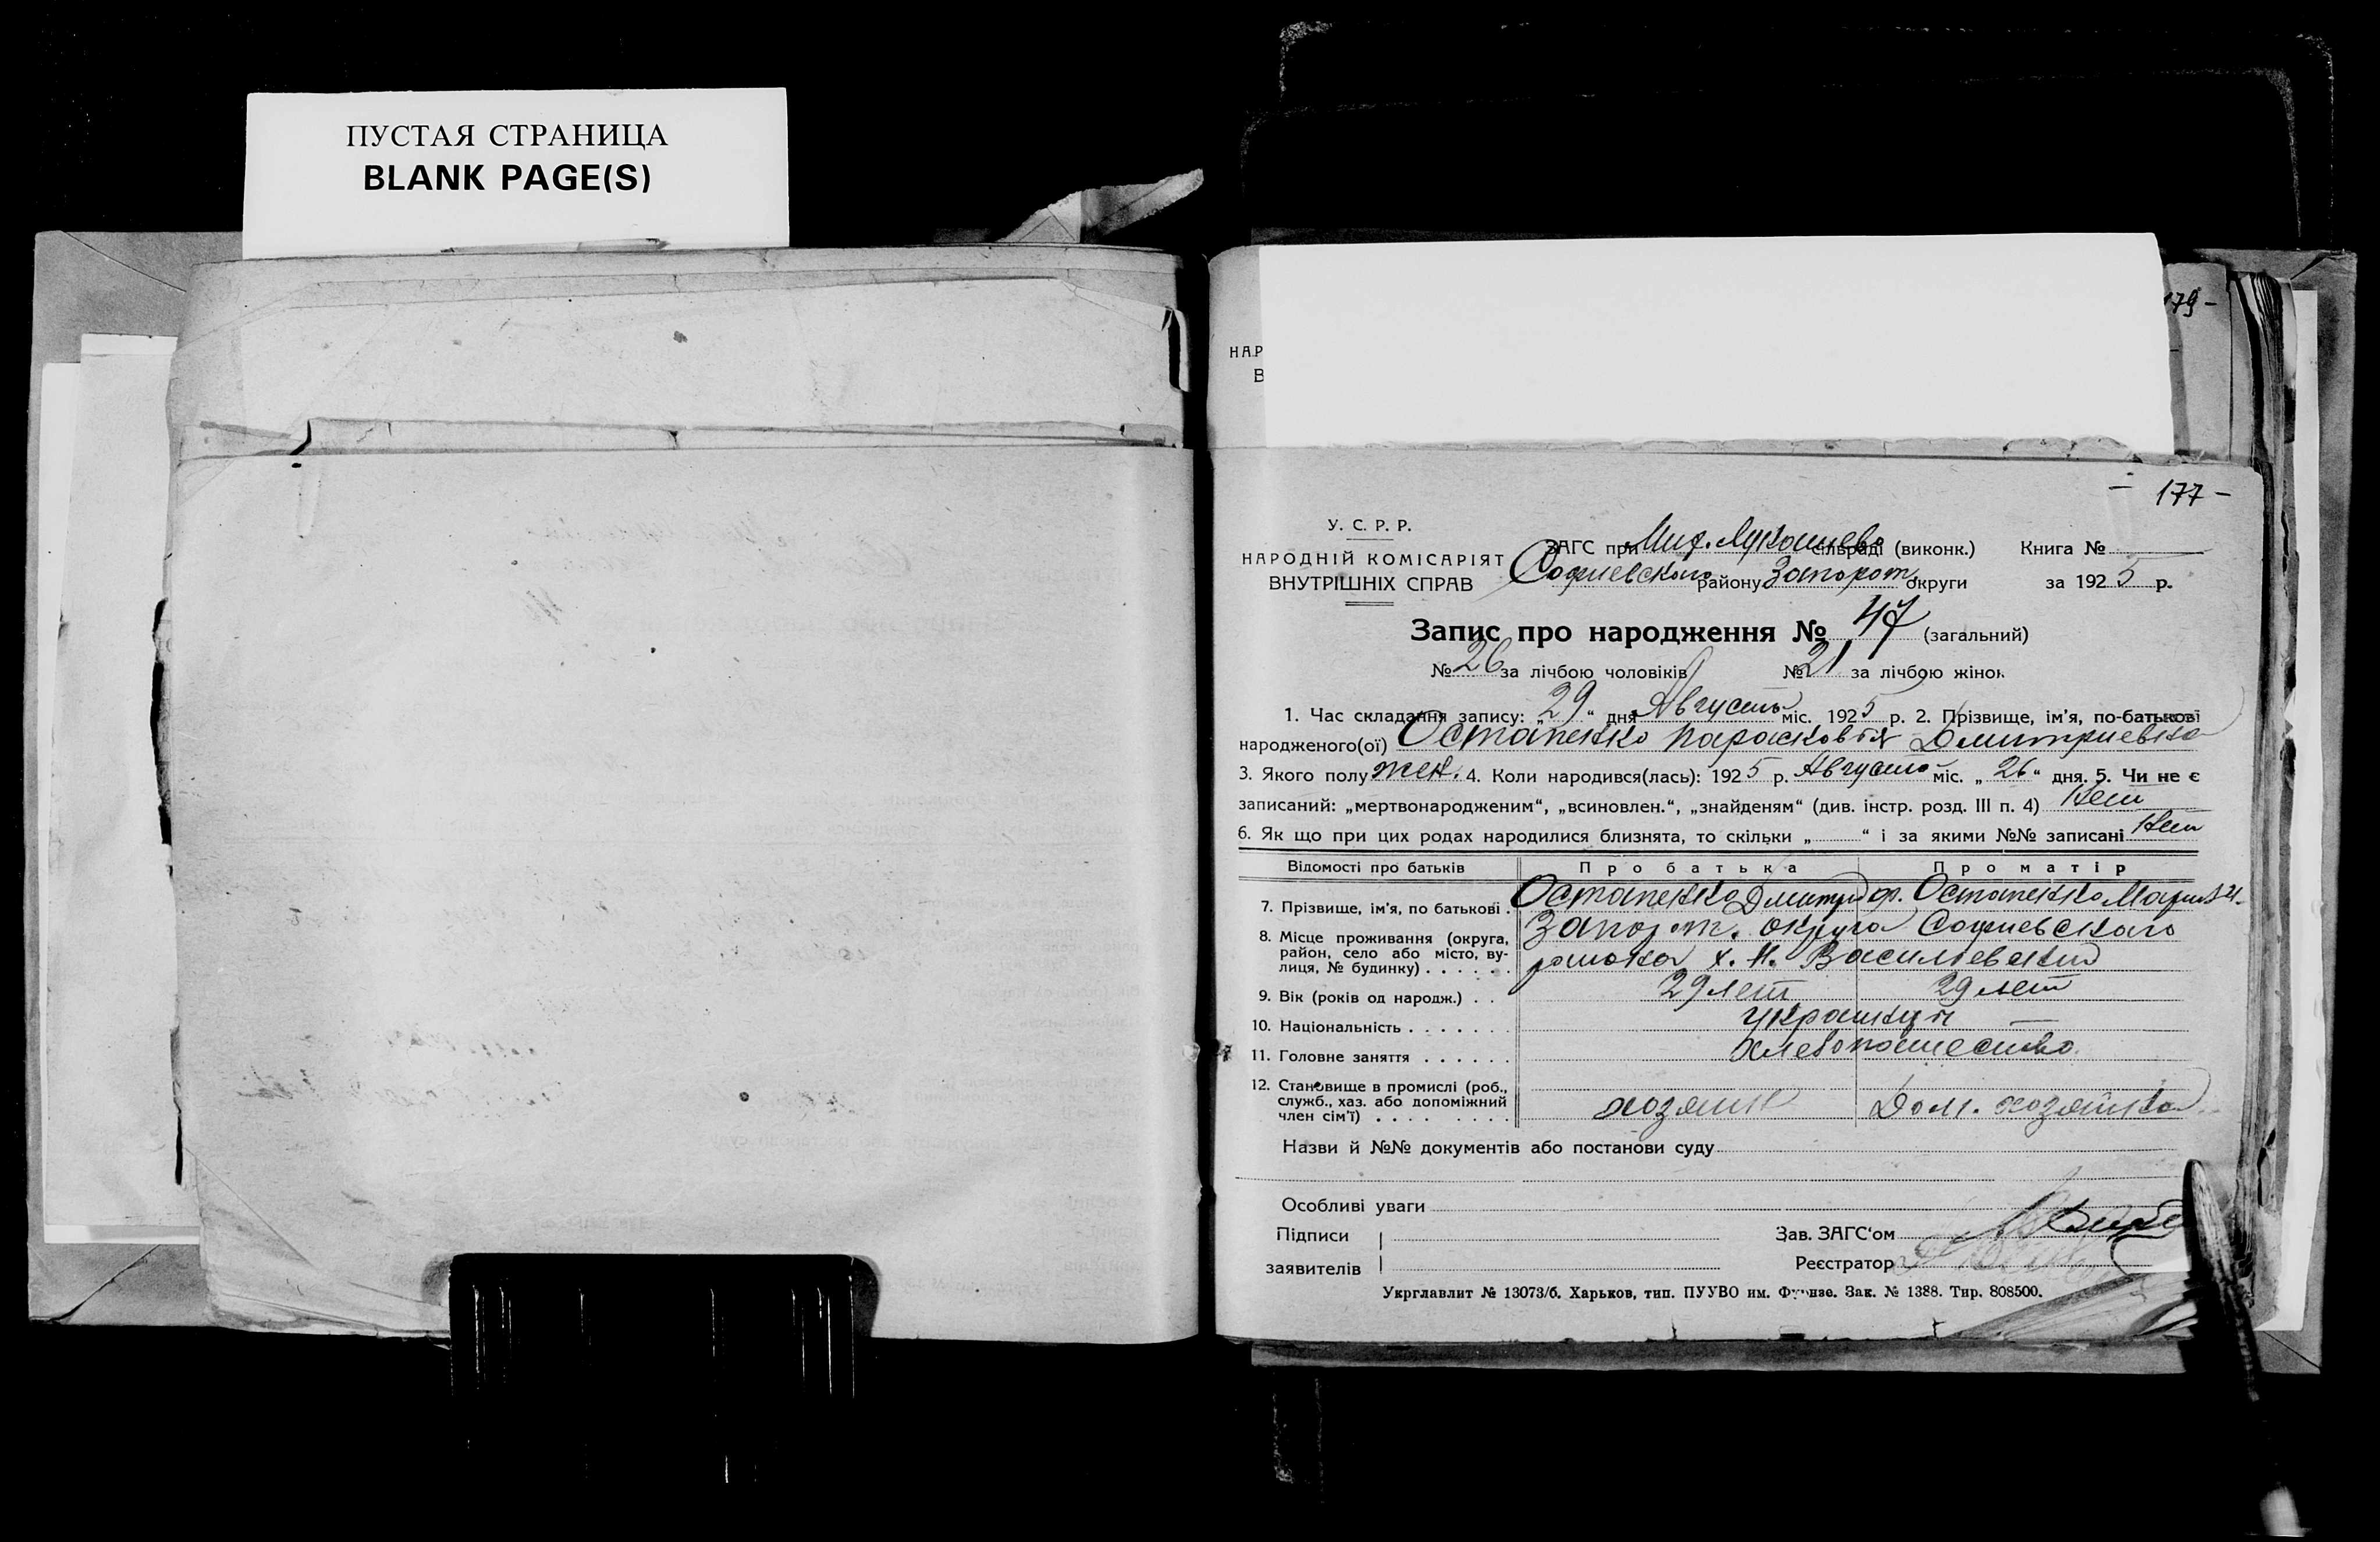 ПУСТАЯ СТРАНИЦА
BLANK PAGE(S)
179 -
НАР
В
- 177 -
У. С. Р. Р.
НАРОДНІЙ КОМІСАРІЯТ
ВНУТРІШНІХ СПРАВ
ЗАГС при Мих. Лукашево сільраді (виконк.) Книга №
Софиевского району Запорож. округи за 1925 р.
Запис про народження № 47 (загальний)
№ 26 за лічбою чоловіків № 21 за лічбою жінок
1. Час складання запису: „29“ дня Август міс. 1925 р. 2. Прізвище, ім'я, по-батькові
народженого(ої) Остапенко Парасковія Дмитриевна
3. Якого полу жен. 4. Коли народився(лась): 1925 р. Августа міс. „26“ дня. 5. Чи не є
записаний: „мертвонародженим“, „всиновлен.“, „знайденям“ (див. інстр. розд. III п. 4) Нет
6. Як що при цих родах народилися близнята, то скільки „ “ і за якими №№ записані Нет
Відомості про батьків Про батька Про матір
7. Прізвище, ім'я, по батькові . Остапенко Дмитрий Остапенко Мария
8. Місце проживання (округа, район, село або місто, вулиця, № будинку) . . . . . . Запорож. округа Софиевского
района х. Н. Васильевский
9. Вік (років од народж.) . . 29 лет 29 лет
10. Національність . . . . . . . Украинци —
11. Головне заняття . . . . . . Хлебопашество
12. Становище в промислі (роб., служб., хаз. або допоміжний член сім'ї) . . . . . . . . хозяин Дом. хозяйка
Назви й №№ документів або постанови суду
Особливі уваги
Підписи
заявителів
Зав. ЗАГС'ом
Реєстратор
Укрглавлит № 13073/б. Харьков, тип. ПУУВО им. Фрунзе. Зак. № 1388. Тир. 808500.